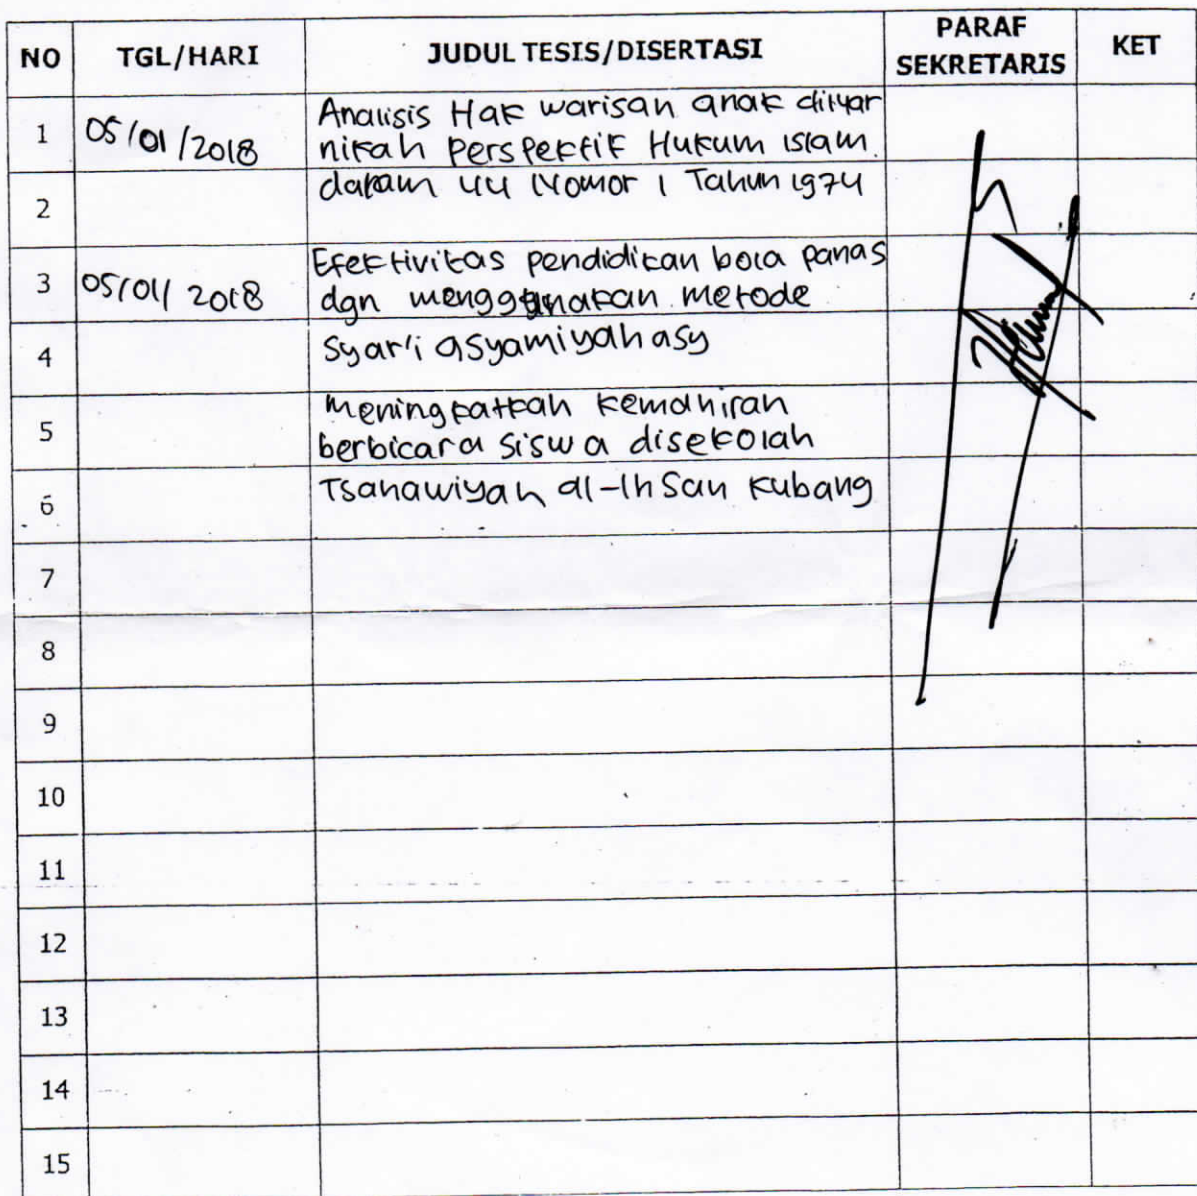 NO TGL/HARI JUDUL TESIS/DISERTASI PARAF SEKRETARIS KET
1 05/01/2018 Analisis Hak warisan anak diluar
nikah Perspektif Hukum islam
2 dalam UU Nomor 1 Tahun 1974
3 05/01/2018 Efektivitas pendidikan bola panas
dgn menggunakan metode
4 syar'i asyamiyah asy
5 meningkatkah kemahiran
berbicara siswa disekolah
6 Tsanawiyah al-Ihsan Kubang
7
8
9
10
11
12
13
14
15